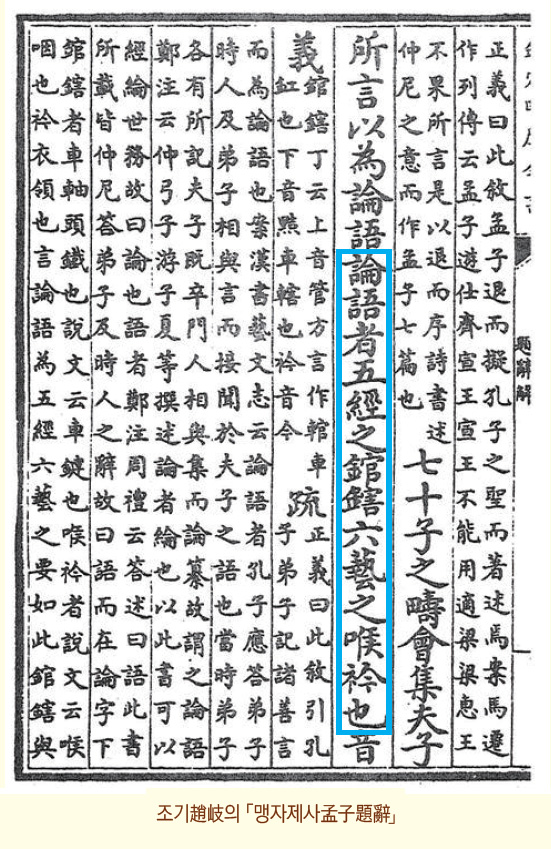 題辭解
正義曰此敘孟子退而擬孔子之聖而著述焉案馬遷
作列傳云孟子遊仕齊宣王宣王不能用適梁梁惠王
不果所言是以退而序詩書述
仲尼之意而作孟子七篇也
七十子之疇會集夫子
所言以為論語論語者五經之錧鎋六藝之喉衿也音
義
錧鎋丁云上音管方言作輨車
釭也下音黠車轄也衿音今
疏
正義曰此敘引孔
子弟子記諸善言
而為論語也案漢書藝文志云論語者孔子應答弟子
時人及弟子相與言而接聞於夫子之語也當時弟子
各有所記夫子既卒門人相與集而論纂故謂之論語
鄭注云仲弓子游子夏等撰述論者綸也以此書可以
經綸世務故曰論也語者鄭注周禮云答述曰語此書
所載皆仲尼答弟子及時人之辭故曰語而在論字下
錧鎋者車軸頭鐵也說文云車鍵也喉衿者說文云喉
咽也衿衣領也言論語為五經六藝之要如此錧鎋與
조기趙岐의 「맹자제사孟子題辭」